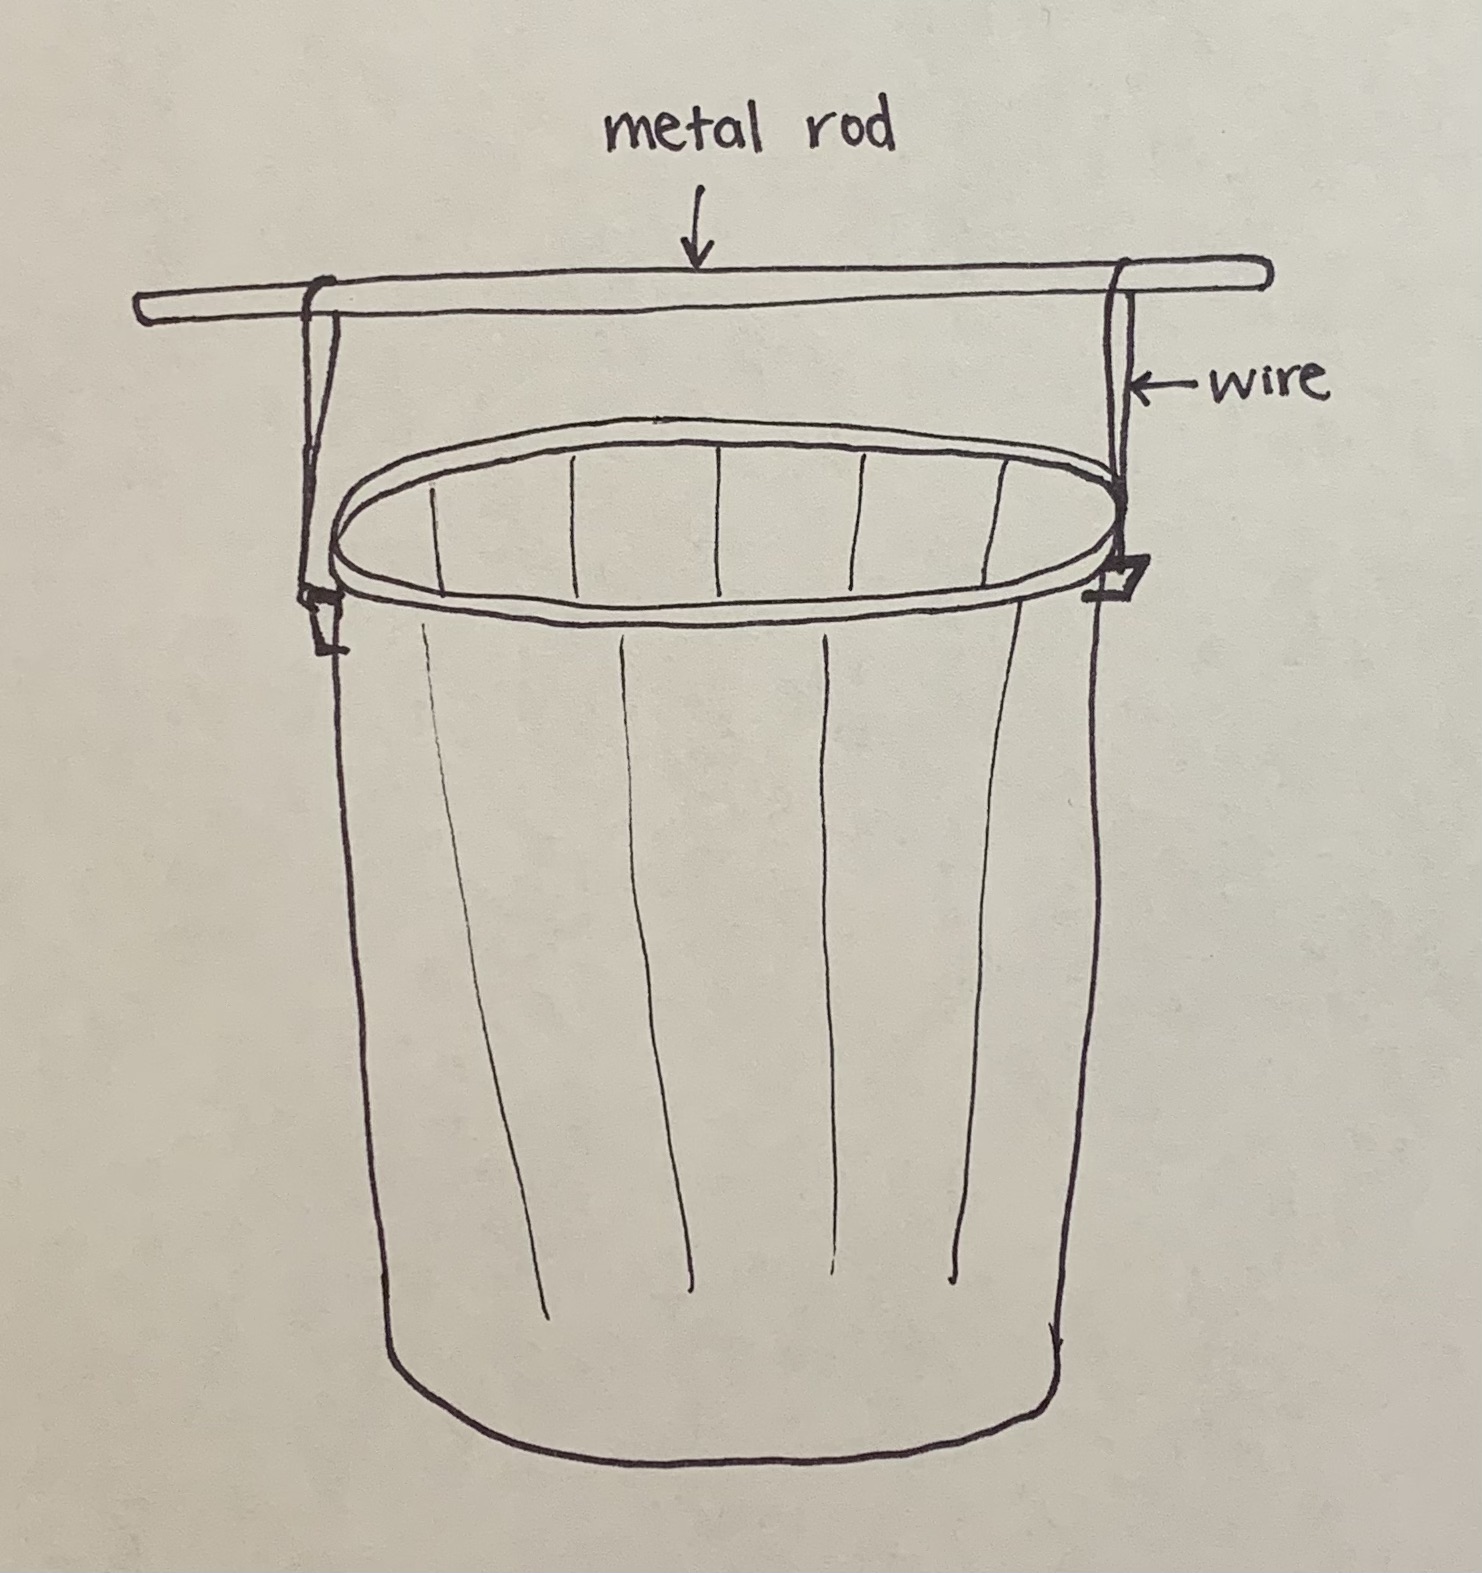 metal rod
wire